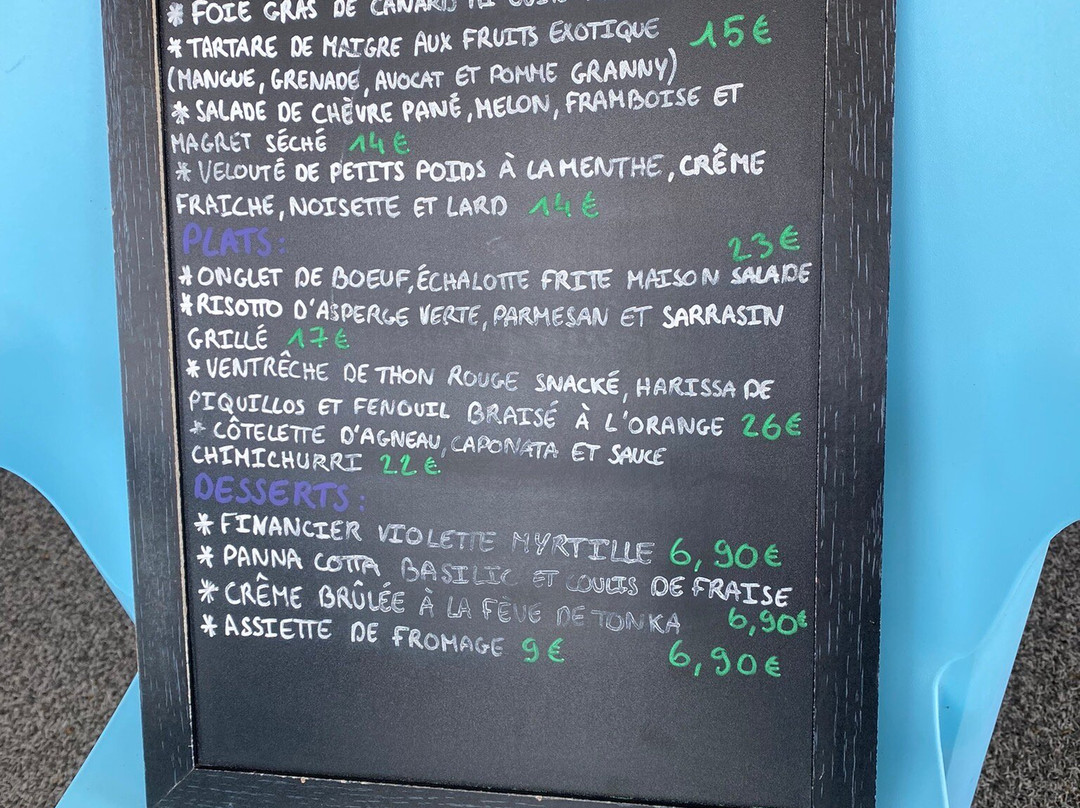 * FOIE GRAS DE CANARD MI CUIT
* TARTARE DE MAIGRE AUX FRUITS EXOTIQUE 15€
(MANGUE, GRENADE, AVOCAT ET POMME GRANNY)
* SALADE DE CHÈVRE PANÉ, MELON, FRAMBOISE ET
MAGRET SÉCHÉ 14€
* VELOUTÉ DE PETITS POIDS À LA MENTHE, CRÊME
FRAICHE, NOISETTE ET LARD 14€
PLATS: 23€
* ONGLET DE BOEUF, ÉCHALOTTE FRITE MAISON SALADE
* RISOTTO D'ASPERGE VERTE, PARMESAN ET SARRASIN
GRILLÉ 17€
* VENTRÊCHE DE THON ROUGE SNACKÉ, HARISSA DE
PIQUILLOS ET FENOUIL BRAISÉ À L'ORANGE 26€
* CÔTELETTE D'AGNEAU, CAPONATA ET SAUCE
CHIMICHURRI 22€
DESSERTS:
* FINANCIER VIOLETTE MYRTILLE 6,90€
* PANNA COTTA BASILIC ET COULIS DE FRAISE
* CRÊME BRÛLÉE À LA FÈVE DE TONKA 6,90€
* ASSIETTE DE FROMAGE 9€ 6,90€